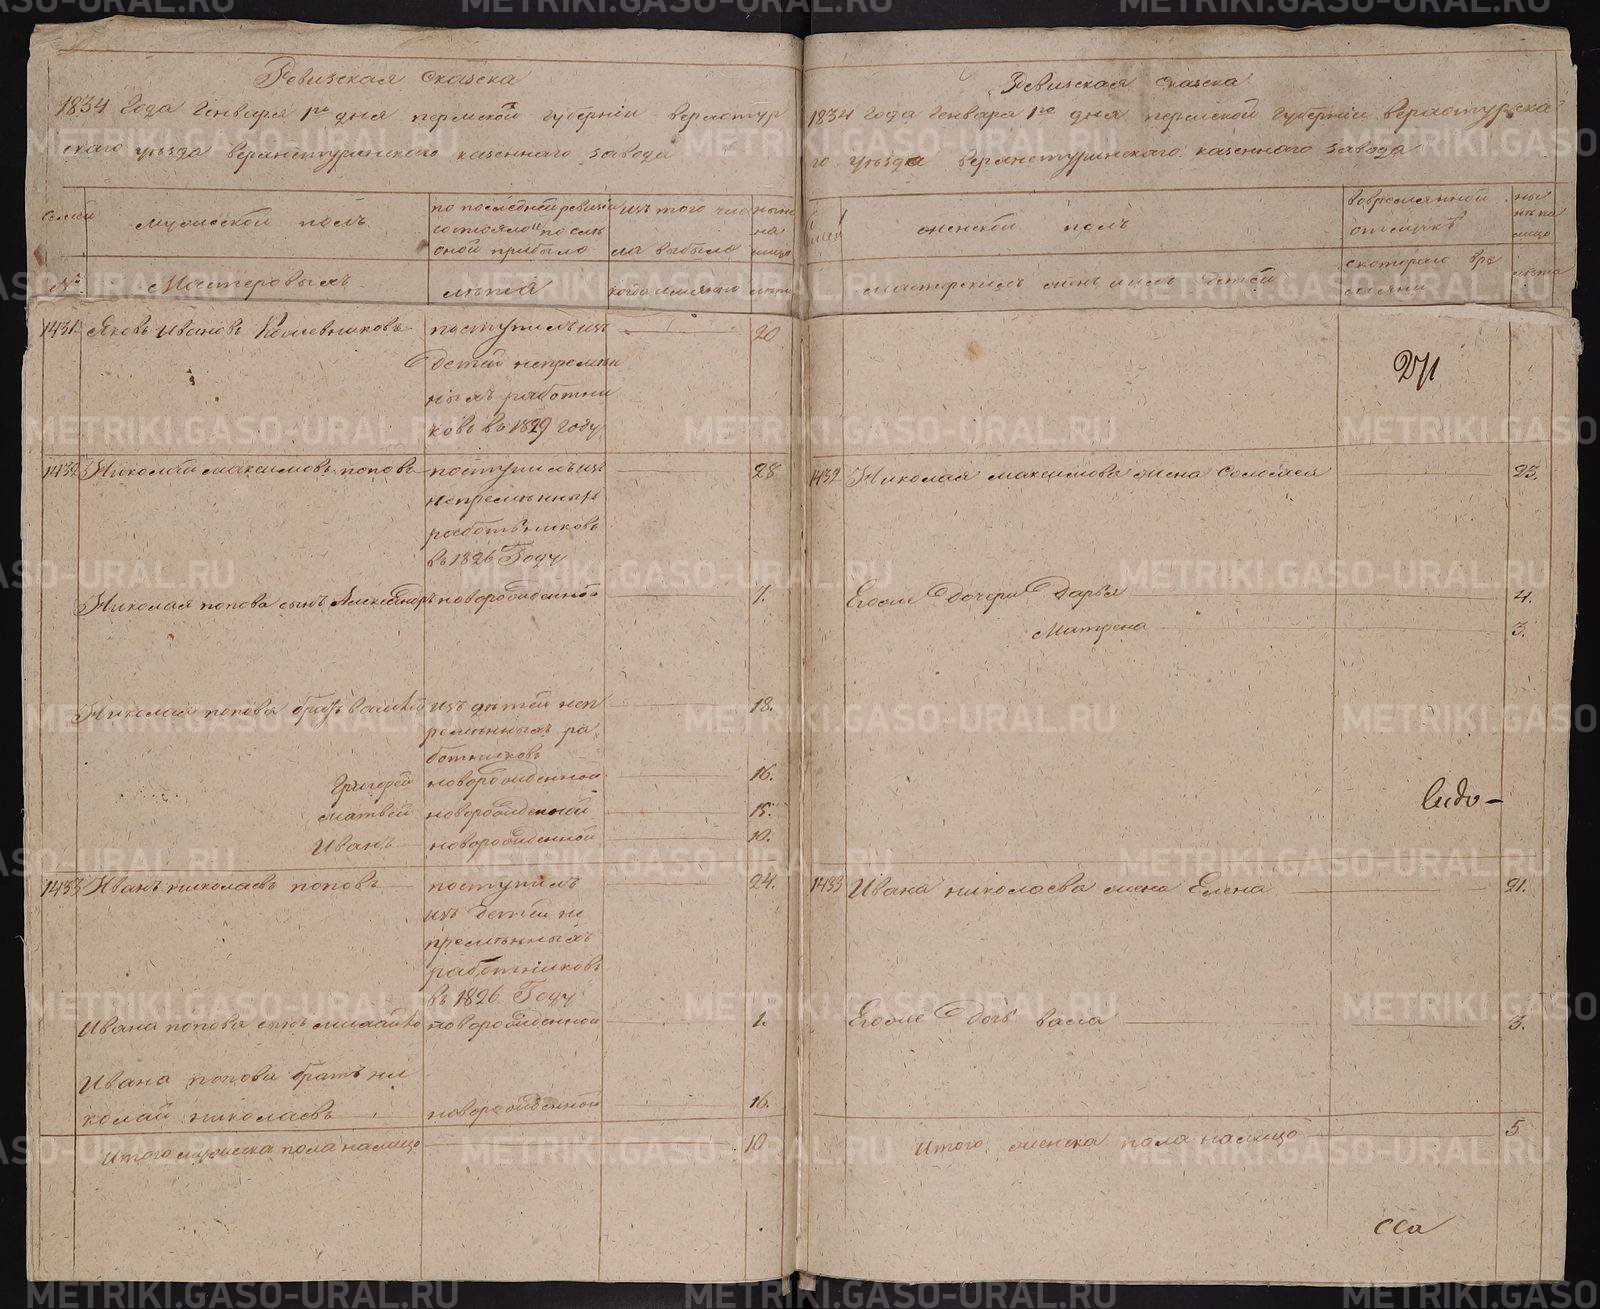 Ревизская сказка
1834 Года Генваря 1го дня пермской губернiи верхотур
скаго уѣзда верхнетуринскаго казеннаго завода
Семьи
мужеской полъ
по последней ревизiи
состояло и по слѣ
оной прибыло
изъ того чис
ла выбыло
нынѣ
на
лицо
№
Мастеровыхъ
лѣта
когда имянно
лѣта
1431 Яковъ Ивановъ Кожевниковъ поступилъ изъ 20
детей непремѣн
ныхъ работни
ковъ въ 1829 году
1432 Николай максимовъ поповъ поступилъ изъ 28
непремѣнныхъ
работниковъ
въ 1826 Году
Николая попова сынъ Александръ новорожденной 7.
Николая попова братъ василей изъ дѣтей неп 18.
ремѣнныхъ ра
ботниковъ
Григорей новорожденной 16.
матвей новорожденной 15.
Иванъ новорожденной 10.
1433 Иванъ николаевъ поповъ поступилъ 24.
изъ детей не
премѣнныхъ
работниковъ
въ 1826 Году
Ивана попова сынъ михайло новорожденной 1.
Ивана попова братъ ни
колай николаевъ новорожденной 16.
Итого мужеска пола налицо 10
Ревизская сказка
1834 Года Генваря 1го дня пермской Губернiи верхотурска
го уѣзда верхнетуринскаго казеннаго завода
женской полъ
вовременной
отлучкѣ
ны
нѣ на
лицо
мастерскихъ женъ и ихъ детей
скотораго вре
мяни
лѣта
271
1432 Николая максимова жена Соломея 23.
Егоже дочери Дарья 4.
Матрена 3.
1433 Ивана николаева жена Елена 21.
Егоже дочь васса 3.
Итого женска пола налицо 5
METRIKI.GASO-URAL.RU